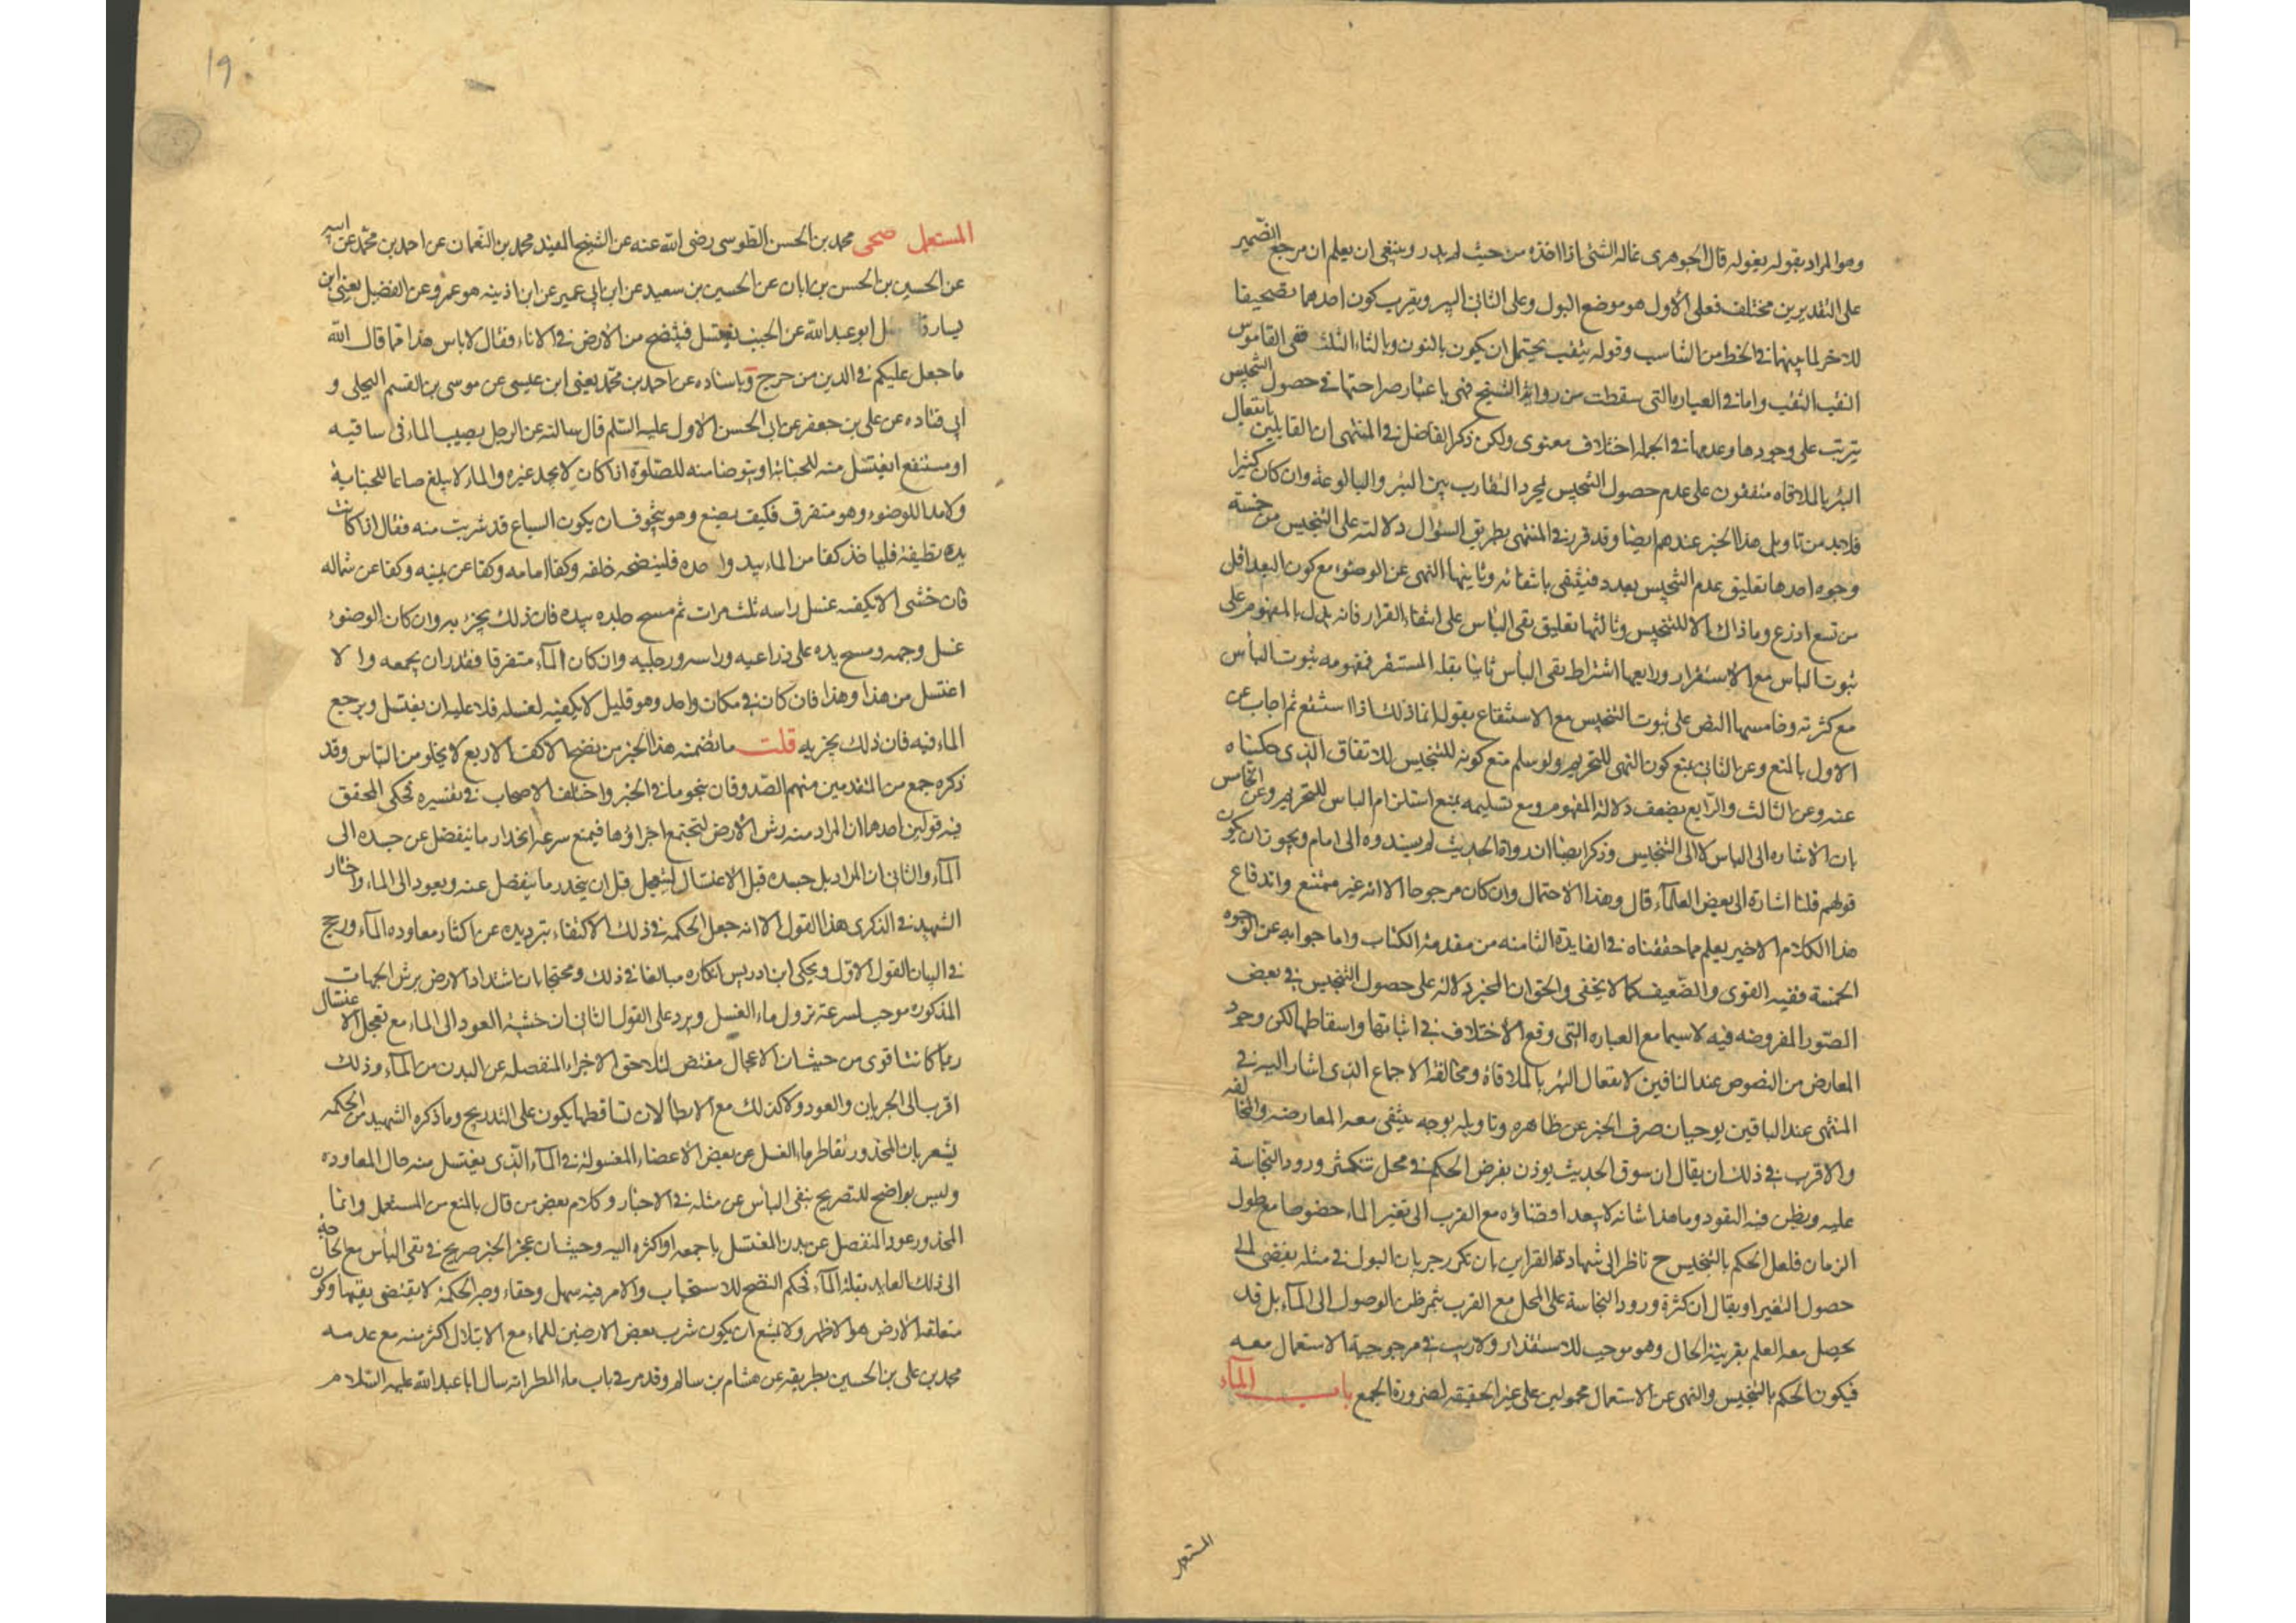 وهو المراد بقوله يغوله قال الجوهرى غاله الشئ اذا اخذه من حيث لم يدر وينبغى ان يعلم ان مرجع الضمير
على التقديرين مختلف فعلى الأول هو موضع البول وعلى الثانى البير ويقرب كون احدهما تصحيفا
للاخر لما بينهما فى الخط من التناسب وقوله يثقب يحتمل ان يكون بالنون وبالثاء المثلث ففى القاموس
النقب الثقب واما فى العباره التى سقطت من رواية الشيخ فهى باعتبار صراحتها فى حصول التنجيس
يترتب على وجودها وعدمها فى الجمله اختلاف معنوى ولكن ذكر الفاضل فى المنتهى ان القايلين بانفعال
البئر بالملاقاه متفقون على عدم حصول التنجيس لمجرد التقارب بين البئر والبالوعة وان كان كثيرا
فلابد من تاويل هذا الخبر عندهم ايضا وقد قرب فى المنتهى بطريق السؤال دلالته على التنجيس من خمسة
وجوه احدها تعليق عدم التنجيس بعدد فينتفى بانتفائه وثانيها النهى عن الوضوء مع كون البعد اقل
من تسع اذرع وما ذاك الا للتنجيس وثالثها تعليق نفى الباس على انتفاء القرار فانه يدل بالمفهوم على
ثبوت الباس مع الاستقرار ورابعها اشتراط نفى البأس ثانيا بقلة المستقر فمفهومه ثبوت البأس
مع كثرته وخامسها النص على ثبوت التنجيس مع الاستنقاع بقوله انما ذلك اذا استنقع ثم اجاب عن
الاول بالمنع وعن الثانى بمنع كون النهى للتحريم ولو سلم منع كونه للتنجيس للاتفاق الذى حكيناه
عنه وعن الثالث والرّابع بضعف دلالة المفهوم ومع تسليمه بمنع استلزام الباس للتحريم وعن الخامس
بان الاشاره الى الباس لا الى التنجيس وذكر ايضا ان رواة الحديث لم يسندوه الى امام ويجوز ان يكون
قولهم قلنا اشارة الى بعض العلمآء قال وهذا الاحتمال وان كان مرجوحا الا انه غير ممتنع واندفاع
هذا الكلام الاخير يعلم مما حققناه فى الفايدة الثامنه من مقدمة الكتاب واما جوابه عن الوجوه
الخمسة ففيه القوى والضّعيف كما لا يخفى والحق ان للخبر دلالة على حصول التنجيس فى بعض
الصّور المفروضه فيه لا سيما مع العباره التى وقع الاختلاف فى اثباتها واسقاطها لكن وجود
المعارض من النصوص عند النافين لانفعال البئر بالملاقاة ومخالفة الاجماع الذى اشار اليه فى
المنتهى عند الباقين يوجبان صرف الخبر عن ظاهره وتاويله بوجه ينتفى معه المعارضه والمخالفه
والاقرب فى ذلك ان يقال ان سوق الحديث يوذن بفرض الحكم فى محل تتكثر ورود النجاسة
عليه ويظن فيه النفود وما هذا شانه لا يبعد افضاؤه مع القرب الى تغير الماء خصوصا مع طول
الزمان فلعل الحكم بالتنجيس ح ناظر الى شهادة القراين بان تكرر جريان البول فى مثله يفضى الى
حصول التغير او يقال ان كثرة ورود النجاسة على المحل مع القرب يثمر ظن الوصول الى المآء بل قد
يحصل معه العلم بقرينة الحال وهو موجب للاستقذار ولاريب فى مرجوحية الاستعمال معه
فيكون الحكم بالتنجيس والنهى عن الاستعمال محمولين على غير الحقيقه لضرورة الجمع باب المآء
المستعمل
١٩
المستعمل صحى محمد بن الحسن الطوسى رضى الله عنه عن الشيخ المفيد محمد بن النعمان عن احمد بن محمّد عن ابيه
عن الحسين بن الحسن بن ابان عن الحسين بن سعيد عن ابن ابى عمير عن ابن اذينه هو عمرو عن الفضيل يعنى ابن
يسار ابو عبد الله عن الجنب يغتسل فينضح من الارض فى الاناء فقال لا باس هذا مما قال الله
ما جعل عليكم فى الدين من حرج وباسناده عن احمد بن محمّد يعنى ابن عيسى عن موسى بن القسم البجلى و
أبى قتاده عن على بن جعفر عن ابى الحسن الاول عليه السّلم قال سالته عن الرجل يصيب الماء فى ساقيه
او مستنقع ايغتسل منه للجنابة او يتوضا منه للصّلوة اذا كان لا يجد غيره والماء لا يبلغ صاعا للجنابة
ولا مدا للوضوء وهو متفرق فكيف يصنع وهو يتخوف ان يكون السباع قد شربت منه فقال اذا كانت
يده نظيفة فلياخذ كفا من الماء بيد واحده فلينضحه خلفه وكفا امامه وكفا عن يمينه وكفا عن شماله
فان خشى الا يكفيه غسل راسه ثلث مرات ثم مسح جلده بيده فان ذلك يجزيه وان كان الوضوء
غسل وجهه ومسح يده على ذراعيه وراسه ورجليه وان كان المآء متفرقا فقدر ان يجمعه والا
اغتسل من هذا وهذا فان كان فى مكان واحد وهو قليل لا يكفيه لغسله فلا عليه ان يغتسل ويرجع
الماء فيه فان ذلك يجزيه قلت ما تضمنه هذا الخبر من نضح الاكف الاربع لا يخلو من التباس وقد
ذكره جمع من المتقدمين منهم الصّدوقان بنحو ما فى الخبر واختلف الاصحاب فى تفسيره فحكى المحقق
فيه قولين احدهما ان المراد منه رش الارض لتجتمع اجزاؤها فيمنع سرعة انحدار ما ينفصل عن جسده الى
المآء والثانى ان المراد بل جسده قبل الاغتسال ليتعجل قبل ان ينحدر ما ينفصل عنه ويعود الى الماء واختار
الشهيد فى الذكرى هذا القول الا انه جعل الحكمه فى ذلك الاكتفاء بترديده عن اكثار معاوده المآء ورجح
فى البيان القول الاوّل ويحكى ابن ادريس انكاره مبالغا فى ذلك ومحتجا بان اشتداد الارض برش الجهات
المذكوره موجب لسرعة نزول ماء الغسل ويرد على القول الثانى ان خشية العود الى الماء مع تعجل الاغتسال
ربما كانت اقوى من حيث ان الاعجال مقتض لتلاحق الاجزاء المنفصله عن البدن من المآء وذلك
اقرب الى الجريان والعود ولا كذلك مع الابطآ لان تساقطها يكون على التدريج وما ذكره الشهيد من الحكمه
يشعر بان المحذور تقاطر ماء الغسل عن بعض الاعضاء المغسوله فى المآء الّذى يغتسل منه حال المعاوده
وليس بواضح للتصريح بنفى البأس عن مثله فى الاخبار وكلام بعض من قال بالمنع من المستعمل وانما
المحذور عود المنفصل عن بدن المغتسل باجمعه او اكثره اليه وحيث ان عجز الخبر صريح فى نفى البأس مع الحاجه
الى ذلك العايد بقلة المآء فحكم النضح للاستحباب والامر فيه سهل وخفاء وجه الحكمة لا يقتضى نفيها وكون
متعلقه الارض هو الاظهر ولا يمتنع ان يكون شرب بعض الارضين للماء مع الابتلال اكثر منه مع عدمه
محمد بن على بن الحسين بطريقه عن هشام بن سالم وقد مر فى باب ماء المطر انه سال ابا عبد الله عليه السّلام